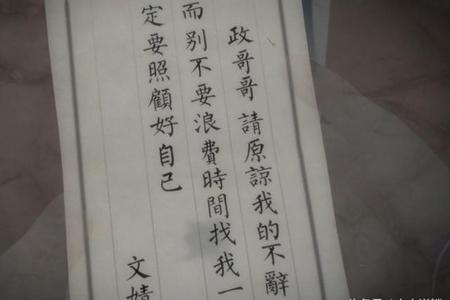 政哥哥 請原諒我的不辭
而别不要浪費時間找我一
定要照顧好自己
文婧